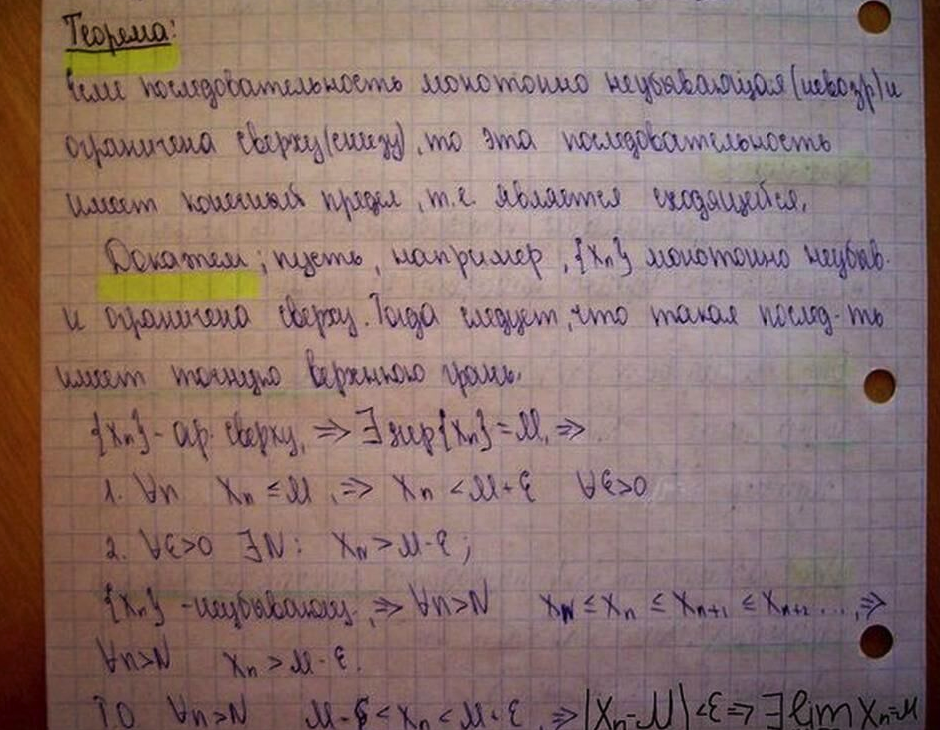 Теорема:
Если последовательность монотонно неубывающая (невозр) и
ограничена сверху (снизу), то эта последовательность
имеет конечный предел, т.е. является сходящейся.
Докажем; пусть, например, {xₙ} монотонно неубыв.
и ограничена сверху. Тогда следует, что такая послед-ть
имеет точную верхнюю грань.
{xₙ} - огр. сверху, ⇒ ∃ sup{xₙ} = M, ⇒
1. ∀n xₙ ≤ M, ⇒ xₙ < M + ε ∀ε>0
2. ∀ε>0 ∃N: x_N > M - ε;
{xₙ} - неубывающ., ⇒ ∀n>N x_N ≤ xₙ ≤ xₙ₊₁ ≤ xₙ₊₂ ..., ⇒
∀n>N xₙ > M - ε.
ТО ∀n>N M - ε < xₙ < M + ε, ⇒ |xₙ - M| < ε ⇒ ∃ lim xₙ = M